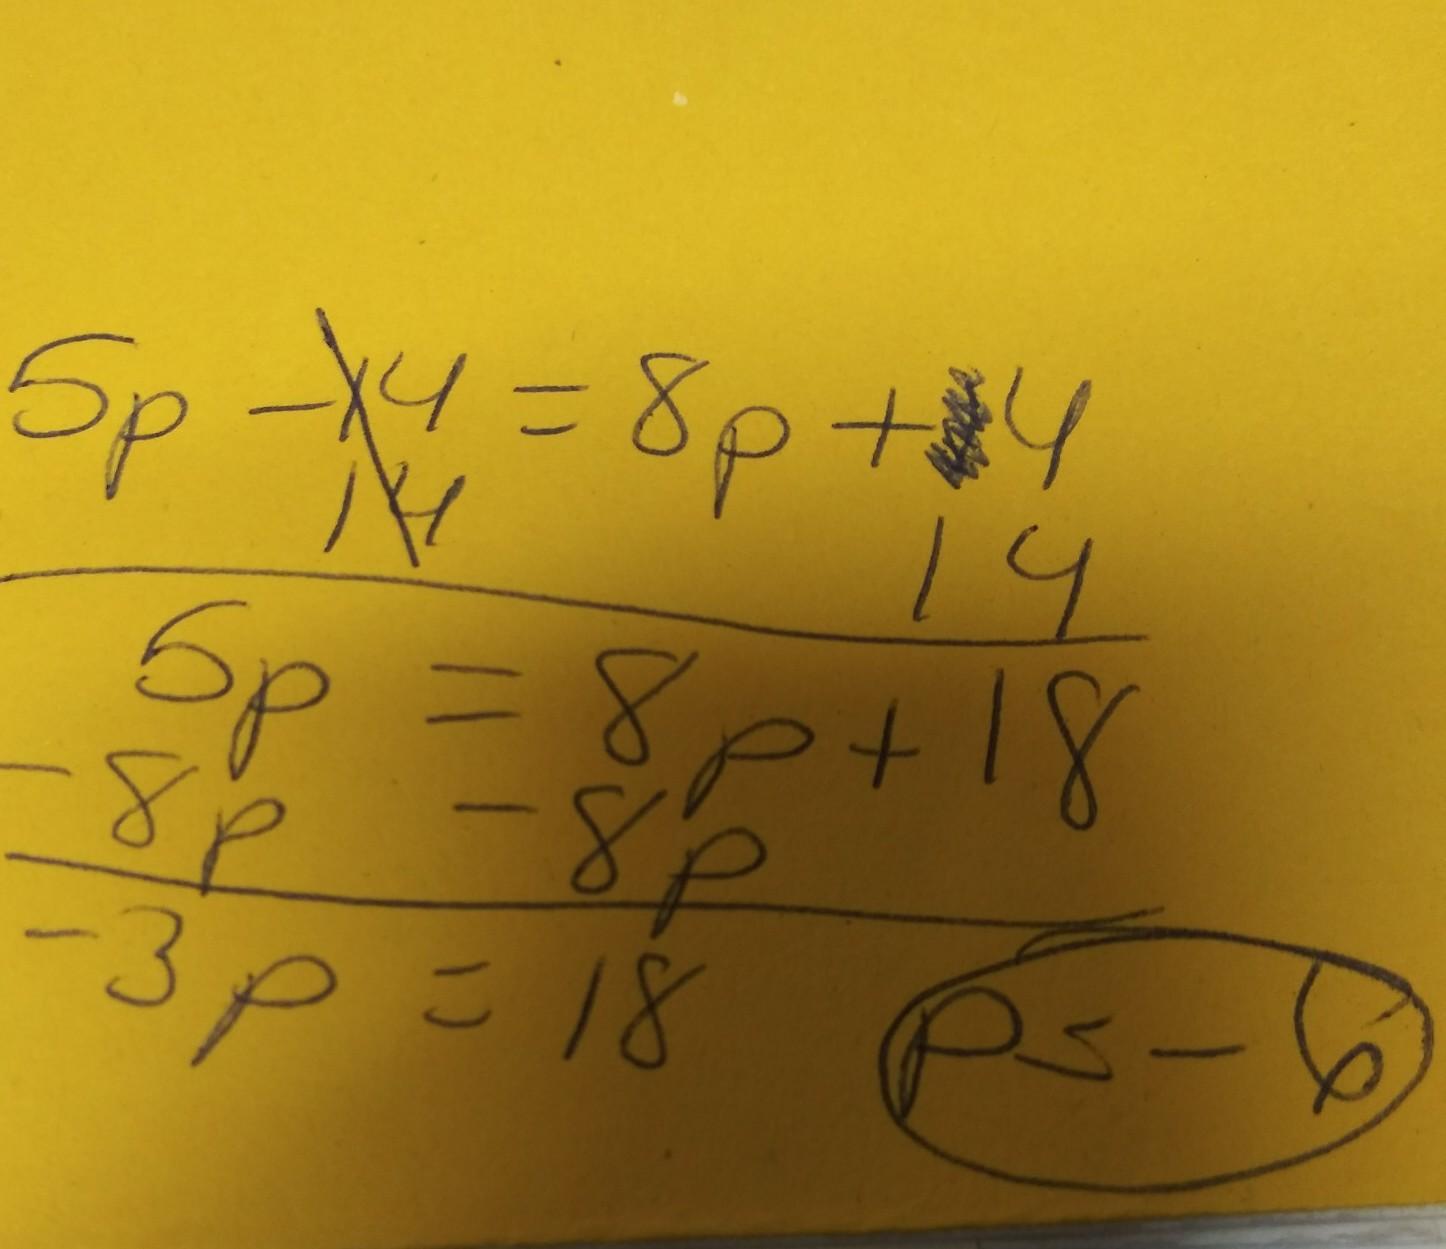 5p - 14 = 8p + 4
14 14
5p = 8p + 18
- 8p - 8p
- 3p = 18 p = - 6